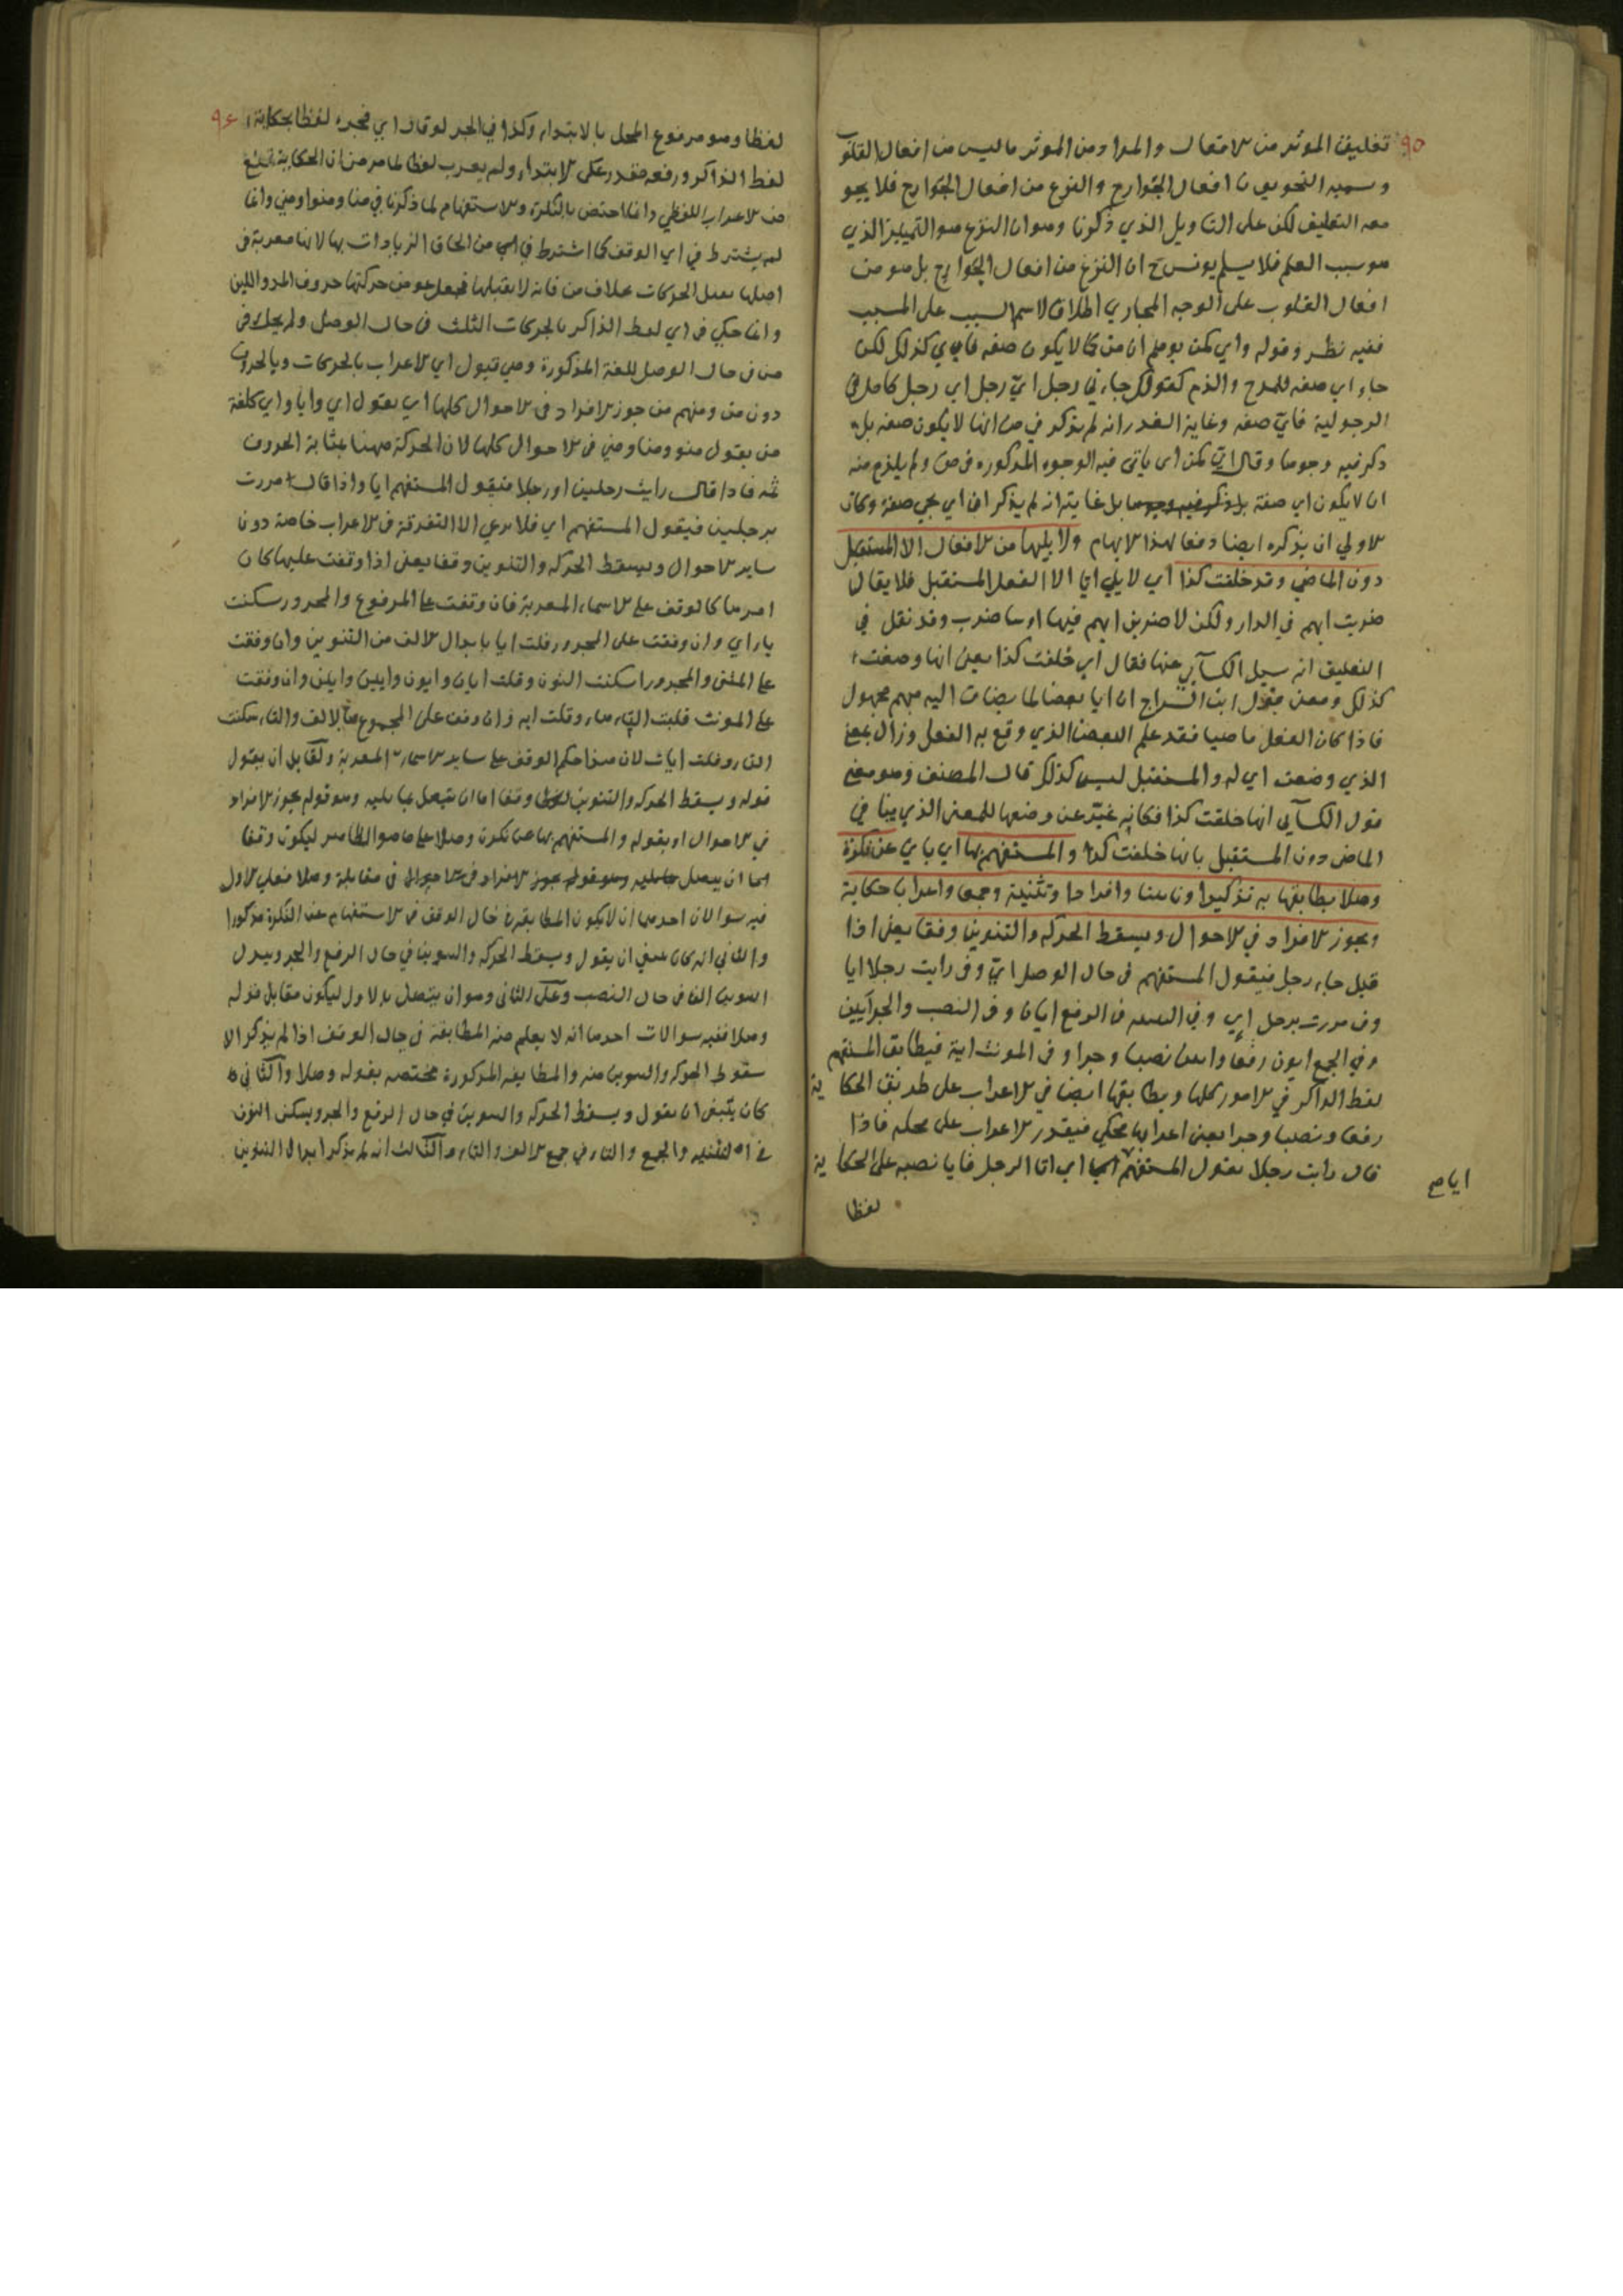 ٩٥
تعليق المؤثر من الافعال والمراد من المؤثر ما ليس من افعال القلوب
وسميه النحويون افعال الجوارح والنزع من افعال الجوارح فلا يجو
معه التعليق لكن على التاويل الذي ذكرنا وهو ان النزع هو التمييز الذي
هو سبب العلم فلا يسلم يونس ح ان النزع من افعال الجوارح بل هو من
افعال القلوب على الوجه المجازي اطلاق لاسم السبب على المسبب
ففيه نظر وقوله واي كمن يوهم ان من كما لا يكون صفه فاي كذلك لكن
جاء اي صفه للمدح والذم كقولك جاءني رجل اي رجل اي رجل كامل في
الرجولية فاي صفه وغاية العذر انه لم يذكر في من انها لا يكون صفه بل
ذكر فيه وجوها وقال اي كمن اي ياتي فيه الوجوه المذكوره في من ولم يلزم منه
ان لا يكون اي صفة بل غايته انه لم يذكر ان اي يجي صفة وكان
الاولي ان يذكره ايضا دفعا لهذا الايهام ولا يليها من الافعال الا المستقبل
دون الماضي وقد خلقت كذا اي لا يلي اي الا الفعل المستقبل فلا يقال
ضربت ايهم في الدار ولكن لاضربن ايهم فيها او سا ضرب وقد نقل في
التعليق انه سيل الكسآي عنها فقال اي خلقت كذا يعني انها وضعت
كذلك ومعنى قول ابن السراج ان ايا بعض لما يضاف اليه مبهم مجهول
فاذا كان الفعل ماضيا فقد علم البعض الذي وقع به الفعل وزال معنى
الذي وضعت اي له والمستقبل ليس كذلك قال المصنف وهو معنى
قول الكسآي انها خلقت كذا فكانه عبّر عن وضعها للمعنى الذي ينافي
الماضي دون المستقبل بانها خلقت كذا والمستفهم بها اي باي عن نكرة
وصلا يطابقها به تذكيرا وتانيثا وافرادا وتثنية وجمعا واعرابا حكاية
ويجوز الافراد في الاحوال ويسقط الحركه والتنوين وقفا يعني اذا
قيل جاء رجل فيقول المستفهم في حال الوصل ايّ وفي رايت رجلا ايا
وفي مررت برجل اي وفي التثنيه في الرفع ايان وفي النصب والجر ايين
وفي الجمع ايون رفعا وايين نصبا وجرا وفي المونث اية فيطابق المستفهم
لفظ الذاكر في الامور كلها ويطابقها ايضا في الاعراب على طريق الحكاية
رفعا ونصبا وجرا يعني اعرابها محكي فيقدر الاعراب على محله فاذا
قال رايت رجلا يقول المستفهم ايا اي انا الرجل فايا نصبه على الحكاية
ايا صح
لفظا
٩٦
لفظا وهو مرفوع المحل بالابتداء وكذا في الجر لو قال اي فجره لفظا بحكاية
لفظ الذاكر ورفعه مقدر على الابتداء ولم يعرب لفظا لما مر من ان الحكاية تمنع
من الاعراب اللفظي وانما اختص بالنكرة والاستفهام لما ذكرنا في منا ومنوا ومني وانما
لم يشترط في اي الوقف كما اشترط في من الحاق الزيادات بها لانها معربة في
اصلها يقبل الحركات بخلاف من فانه لا يقبلها فجعل عوض حركتها حروف المد واللين
وانما حكي في اي لفظ الذاكر بالحركات الثلث في حال الوصل ولم يحك في
من في حال الوصل للعلة المذكورة وهي قبول اي الاعراب بالحركات وبالحروف
دون من ومنهم من جوز الافراد في الاحوال كلها اي يقول اي وايا واي كلغة
من يقول منو ومنا ومني في الاحوال كلها لان الحركة ههنا بمثابة الحروف
ثمه فاذا قال رايت رجلين او رجلا فيقول المستفهم ايا واذا قال مررت
برجلين فيقول المستفهم اي فلا يدعي الا التفرقة في الاعراب خاصة دون
ساير الاحوال ويسقط الحركه والتنوين وقفا يعني اذا وقفت عليها كان
امرها كالوقف على الاسماء المعربة فان وقفت على المرفوع والمجرور سكنت
يا اي وان وقفت على المجرور قلت ايا بابدال الالف من التنوين وان وقفت
على المثنى والمجرور اسكنت النون وقلت ايان وايون وايين وايين وان وقفت
على المونث قلبت التاء هاء وقلت ايه وان وقف على المجموع بالالف والتاء سكنت
التاء وقلت ايات لان هذا حكم الوقف على ساير الاسماء المعربة ولقايل ان يقول
قوله ويسقط الحركه والتنوين وقفا اما ان يتصل بما يليه وهو قوله يجوز الافراد
في الاحوال او بقوله والمستفهم بها عن نكرة وصلا على ما هو الظاهر ليكون وقفا
في مقابلة وصلا فعلى الاول
فيه سوالان احدهما ان لا يكون المطابقة في حال الوقف في الاستفهام عن النكرة مذكورا
والثاني انه كان ينبغي ان يقول ويسقط الحركه والتنوين في حال الرفع والجر ويبدل
التنوين الفا في حال النصب وعلى الثاني وهو ان يتصل بالاول ليكون مقابل قوله
وصلا ففيه سوالات احدها انه لا يعلم منه المطابقة في حال الوقف اذا لم يذكر الا
سقوط الحركه والتنوين منه والمطابقه المذكورة مختصه بقوله وصلا والثاني انه
كان ينبغي ان يقول ويسقط الحركه والتنوين في حال الرفع والجر ويسكن النون
في التثنيه والجمع والتاء في جمع الالف والتاء والثالث انه لم يذكر ابدال التنوين